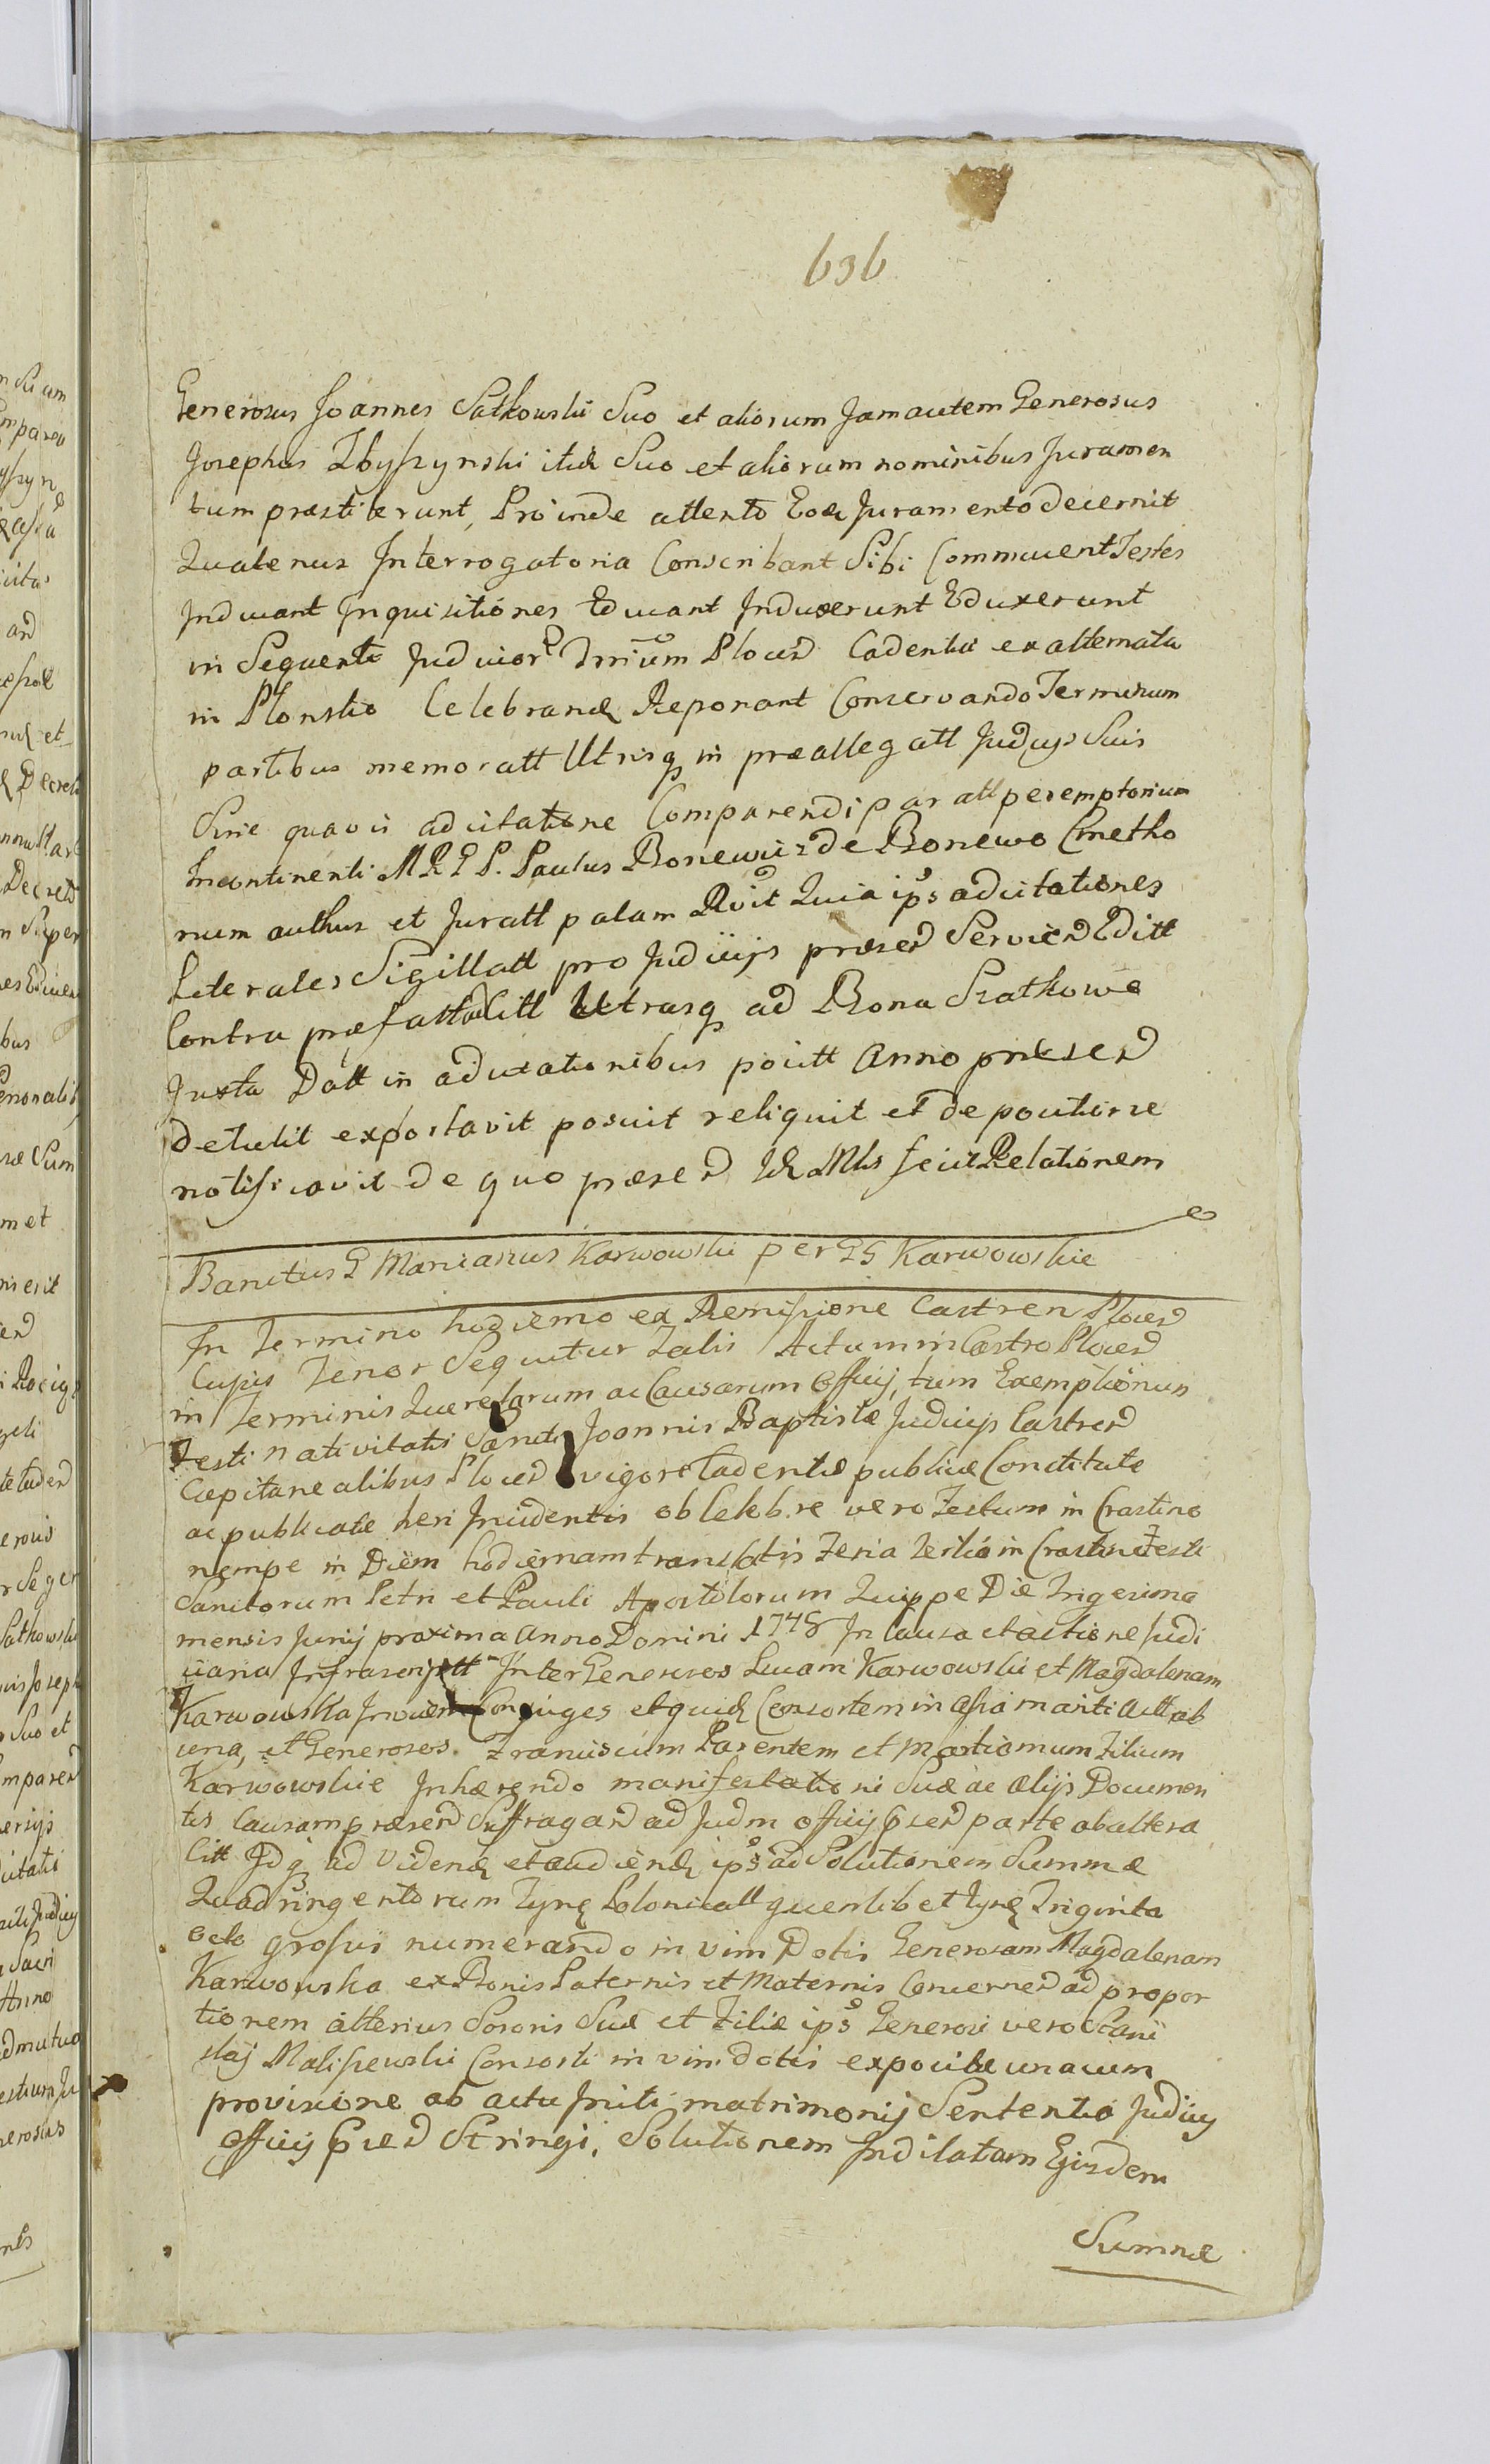 636
Generosus Joannes Sutkowski Suo et aliorum Jam autem Generosus
Josephus Zbyszynski itid Suo et aliorum nominibus Juramen
tum præstiterunt, Proinde attento Eod Juramento decernit
Quatenus Interrogatoria Conscribant Sibi Communicent Testes
Inducant Inquisitiónes Educant Induxerunt Eduxerunt
in Sequenti Judicior Trrium Plocen Cadentia ex alternata
in Plonsko Celebrand Reponant Conservando Terminum
partibus memoratt Utrisq in præallegatt Judicijs Suis
Sine quavis adcitatione Comparendi paratt peremptorium
Incontinenti MRGP. Paulus Boniewicz de Boniewo Cmetho
num authus et Juratt palam Rvit Quia ips adcitationes
Literales Sigillatt pro Judicijs præsen Servien Editt
Contra præfattas Citt Utrasq ad Bona Szatkowe
Juxta Datt in adcitationibus positt Anno præsen
detulit exportavit posuit reliquit et de positione
notificavit de quo præsen Mls fecit Relationem
Banitus G Marcianus Karwowski per GG Karwowskie
In Termino hodierno ex Remissione Castren Plocen
Cujus Tenor Sequitur Talis Actum in Castro Plocen
in Terminis Querelarum ac Causarum Officij, tum Exemptionum
Festi nativitatis Sancti Joannis Baptistæ Judicijs Castren
Capitanealibus Plocen vigore Cadentiæ publicæ Constitutæ
ac publicatæ heri Incidentis ob Celebre vero Festum in Crastino
nempe in Diem hodiernam translatis Feria tertia in Crastino Festi
Sanctorum Petri et Pauli Apostolorum Quippe Die Trigesima
mensis Junij proxima Anno Domini 1748 In Causa et actione Judi
ciaria Infrascriptt Inter Generosos Lucam Karwowski et Magdalenam
Karwowska Invicem Conjuges et quid Consortem in assia mariti Act ab
una, et Generosos Franciscum Parentem et Martianum Filium
Karwowskie Inhærendo manifestationi Suæ ac alijs Documen
tis Causam præsen Suffragan ad Judm officij præsen parte ab altera
Citt Idq ad Vidend et audiend ips ad Solutionem Summæ
Quadringentorum Tynf Polonicall quemlibet tynf Triginta
octo grossis numerando in vim Dotis Generosam Magdalenam
Karwowska ex Bonis Paternis et Maternis Concernen ad propor
tionem alterius Sororis Suæ et Filiæ ips Generosi vero Stani
slaj Maliszewski Consorti in vim dotis expositæ unacum
provisione ab actu Initi matrimonij Sententia Judicij
officij præsen Stringi, Solutionem Indilatam Ejusdem
Summæ